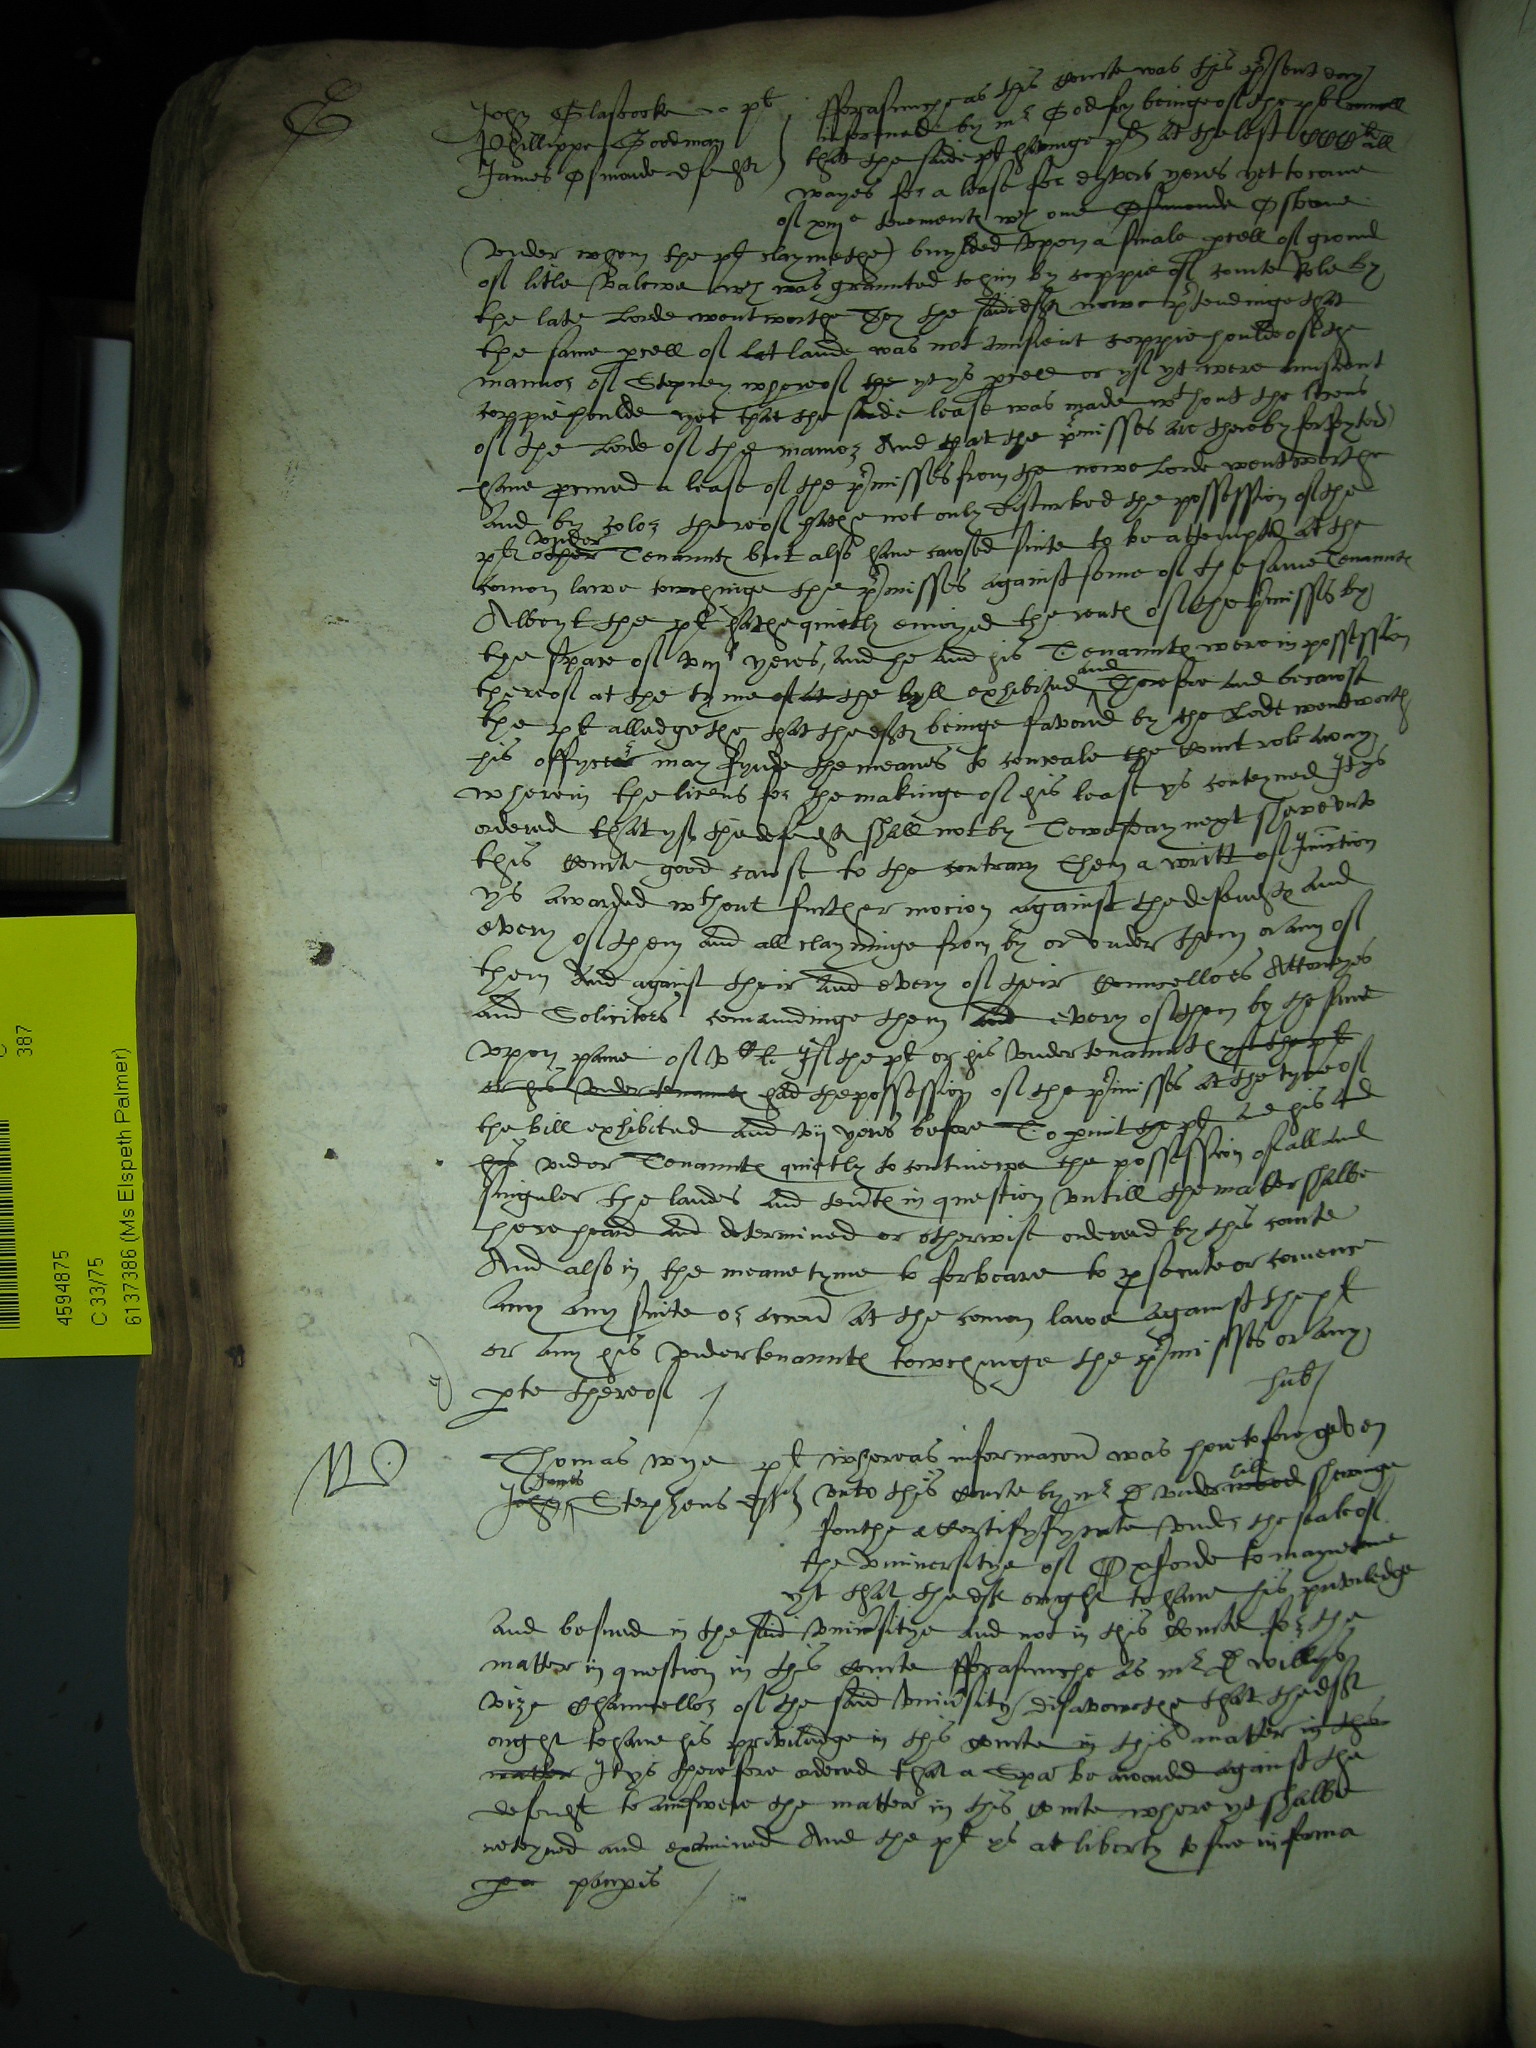 John Glascocke pl
Phillippe Goodman
James Osmonde defts
fforasmuche as this Courte was this p'sent day
informed by mr Godfrey beinge of the pl Councell
that the saide pl havinge pd at the lest all
wayes for a lease for dyvers yeres yet to come
of xiije tenements wch one Osmonde Osborne
under whom the pl claymethe) buylded upon a smale pcell of ground
of litle valewe wch was graunted to him by coppie of courte Role by
the late Lorde wentworthe They the said defts nowe p'tendinge that
the same pcell of lat lande was not auncient coppiehoulde of the
mannor of Stepney whereof the yt ys pcell or yf yt were auncient
coppiehoulde yet that the saide lease was made wthout the licens
of the Lorde of the mannor And that the p'misses are thereby forfeyted
have pcured a lease of the p'misses from the nowe Lorde wentworthe
and by color thereof hathe not only disturbed the possession of the
pl other under Tenaunts but also have caused suite to be attempted at the
comon lawe towchinge the p'misses against some of the same Tenaunts
Albeyt the pl hathe quietly enioyed the rents of the p'misses by
the space of viije yeres, and he and his Tenaunts were in possession
thereof at the tyme of at the byll exhibited and Therefore and because
the pl alledgethe that the defts beinge favored by the Lorde wentworth
his offycers may fynde the meanes to conceale the Court role away
wherein the licens for the makinge of his lease ys conteyned It ys
ordered that yf the defendts shall not by Tewesday next shewe unto
this Courte good cause to the contrary then a writt of Iniunction
ys awarded wthout further mocion against the defendts and
every of them and all clayminge from by or under them or any of
them And against their and every of their Councellors Attorneyes
and Solicitors comaundinge them and every of them by the same
upon paine of vC li. If the pl or his undertenaunts yf the pl
or his undertenaunts had the possession of the p'misses at the tyme of
the bill exhibited and vij yeres before To pmit the pl and his and
his under Tenaunts quietly to contineue the possession of all and
singuler the landes and tents in question untill the matter shalbe
here heard and determined or otherwise ordered by this courte
And also in the meane tyme to forbeare to psecute or comence
any any suite or accion at the comon lawe against the pl
or any his undertenaunts towchinge the p'misses or any
pte thereof
Thomas wye pl
John James Stephens deft
whereas informacon was heretofore geven
unto this Courte by mr D underwood hill shewinge
forthe a certifyfycate under the seale of
the Universitye of Oxforde to mayneteine
yt that the deft ought to have his priviledge
and be sued in the said Universitye and not in this Courte for the
matter in question in this Courte fforasmuche as mr D willys
vize Chauncellor of the said University disavowethe that the deft
ought to have his priviledge in this Courte in this matter in this
matter It ys therefore ordered that a Spa be awarded against the
defendt to answere the matter in this Courte where yt shalbe
reteyned and examined And the pl ys at liberty to sue in forma
pa paupis
387
4594875
C 33/75
6137386 (Ms Elspeth Palmer)